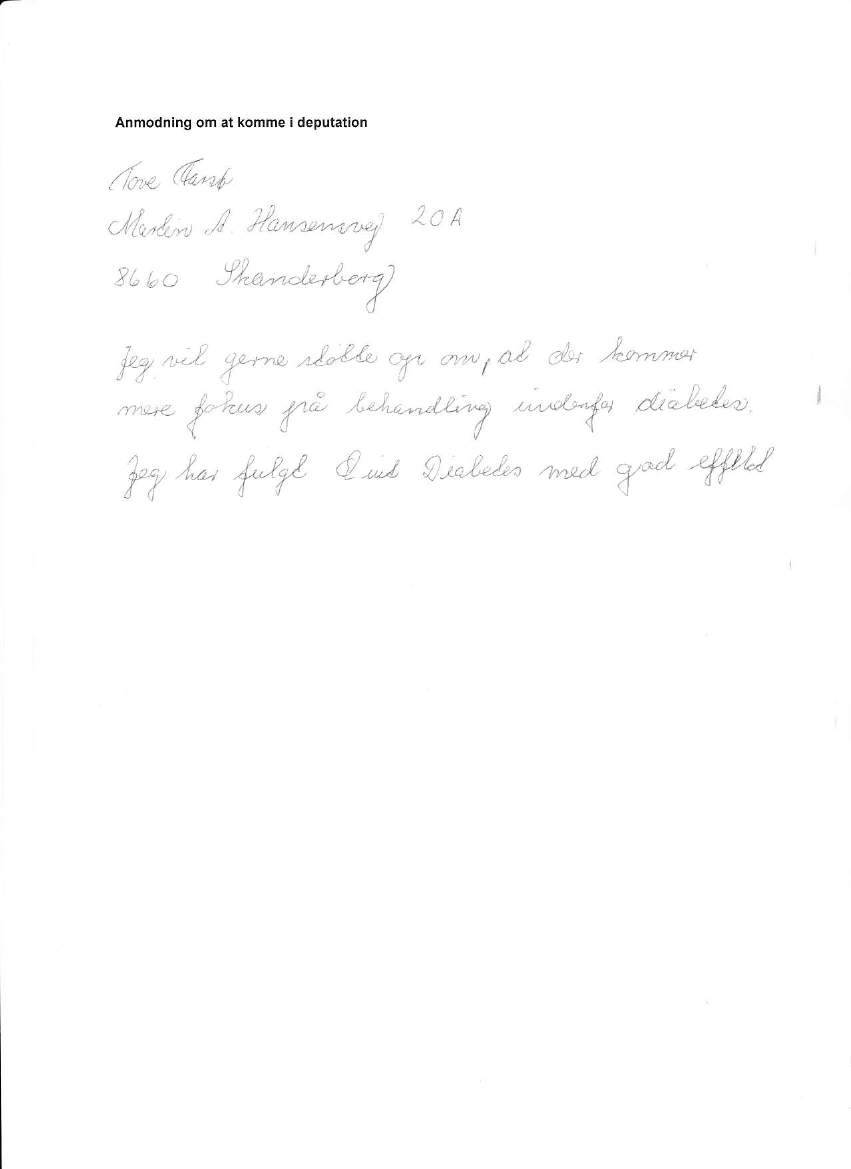 Anmodning om at komme i deputation
Tove
Martin A. Hansensvej 20A
8660 Skanderborg
Jeg vil gerne støtte op om, at der kommer
mere fokus på behandling indenfor diabetes.
Jeg har fulgt Quit Diabetes med god effekt